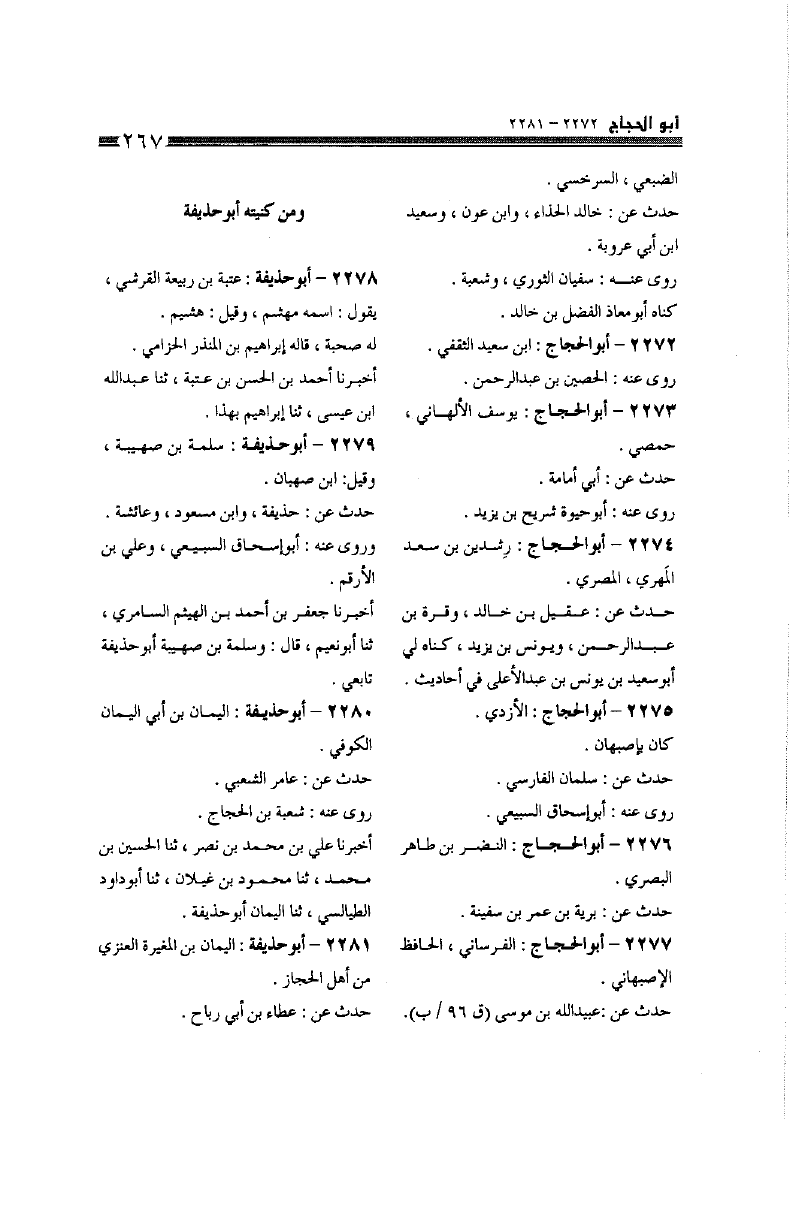 أبو الحجاج ٢٢٧٢ – ٢٢٨١
٢٦٧
الضبعي ، السرخسي .
حدث عن : خالد الحذاء ، وابن عون ، وسعيد
ابن أبي عروبة .
روى عنـــه : سفيان الثوري ، وشعبة .
كناه أبو معاذ الفضل بن خالد .
٢٢٧٢ – أبو الحجاج : ابن سعيد الثقفي .
روى عنه : الحصين بن عبدالرحمن .
٢٢٧٣ – أبو الحجاج : يوسف الألهاني ،
حمصي .
حدث عن : أبي أمامة .
روى عنه : أبو حيوة شريح بن يزيد .
٢٢٧٤ – أبو الحجاج : رِشدين بن سعد
المَهري ، المصري .
حدث عن : عقيل بن خالد ، وقرة بن
عبدالرحمن ، ويونس بن يزيد ، كناه لي
أبو سعيد بن يونس بن عبدالأعلى في أحاديث .
٢٢٧٥ – أبو الحجاج : الأزدي .
كان بإصبهان .
حدث عن : سلمان الفارسي .
روى عنه : أبو إسحاق السبيعي .
٢٢٧٦ – أبو الحجاج : النضر بن طاهر
البصري .
حدث عن : برية بن عمر بن سفينة .
٢٢٧٧ – أبو الحجاج : الفرساني ، الحافظ
الإصبهاني .
حدث عن :عبيدالله بن موسى (ق ٩٦ / ب).
ومن كنيته أبو حذيفة
٢٢٧٨ – أبو حذيفة : عتبة بن ربيعة القرشي ،
يقول : اسمه مهشم ، وقيل : هشيم .
له صحبة ، قاله إبراهيم بن المنذر الحزامي .
أخبرنا أحمد بن الحسن بن عتبة ، ثنا عبدالله
ابن عيسى ، ثنا إبراهيم بهذا .
٢٢٧٩ – أبو حذيفة : سلمة بن صهيبة ،
وقيل: ابن صهبان .
حدث عن : حذيفة ، وابن مسعود ، وعائشة .
وروى عنه : أبو إسحاق السبيعي ، وعلي بن
الأرقم .
أخبرنا جعفر بن أحمد بن الهيثم السامري ،
ثنا أبو نعيم ، قال : وسلمة بن صهيبة أبو حذيفة
تابعي .
٢٢٨٠ – أبو حذيفة : اليمان بن أبي اليمان
الكوفي .
حدث عن : عامر الشعبي .
روى عنه : شعبة بن الحجاج .
أخبرنا علي بن محمد بن نصر ، ثنا الحسين بن
محمد ، ثنا محمود بن غيلان ، ثنا أبو داود
الطيالسي ، ثنا اليمان أبو حذيفة .
٢٢٨١ – أبو حذيفة : اليمان بن المغيرة العنزي
من أهل الحجاز .
حدث عن : عطاء بن أبي رباح .